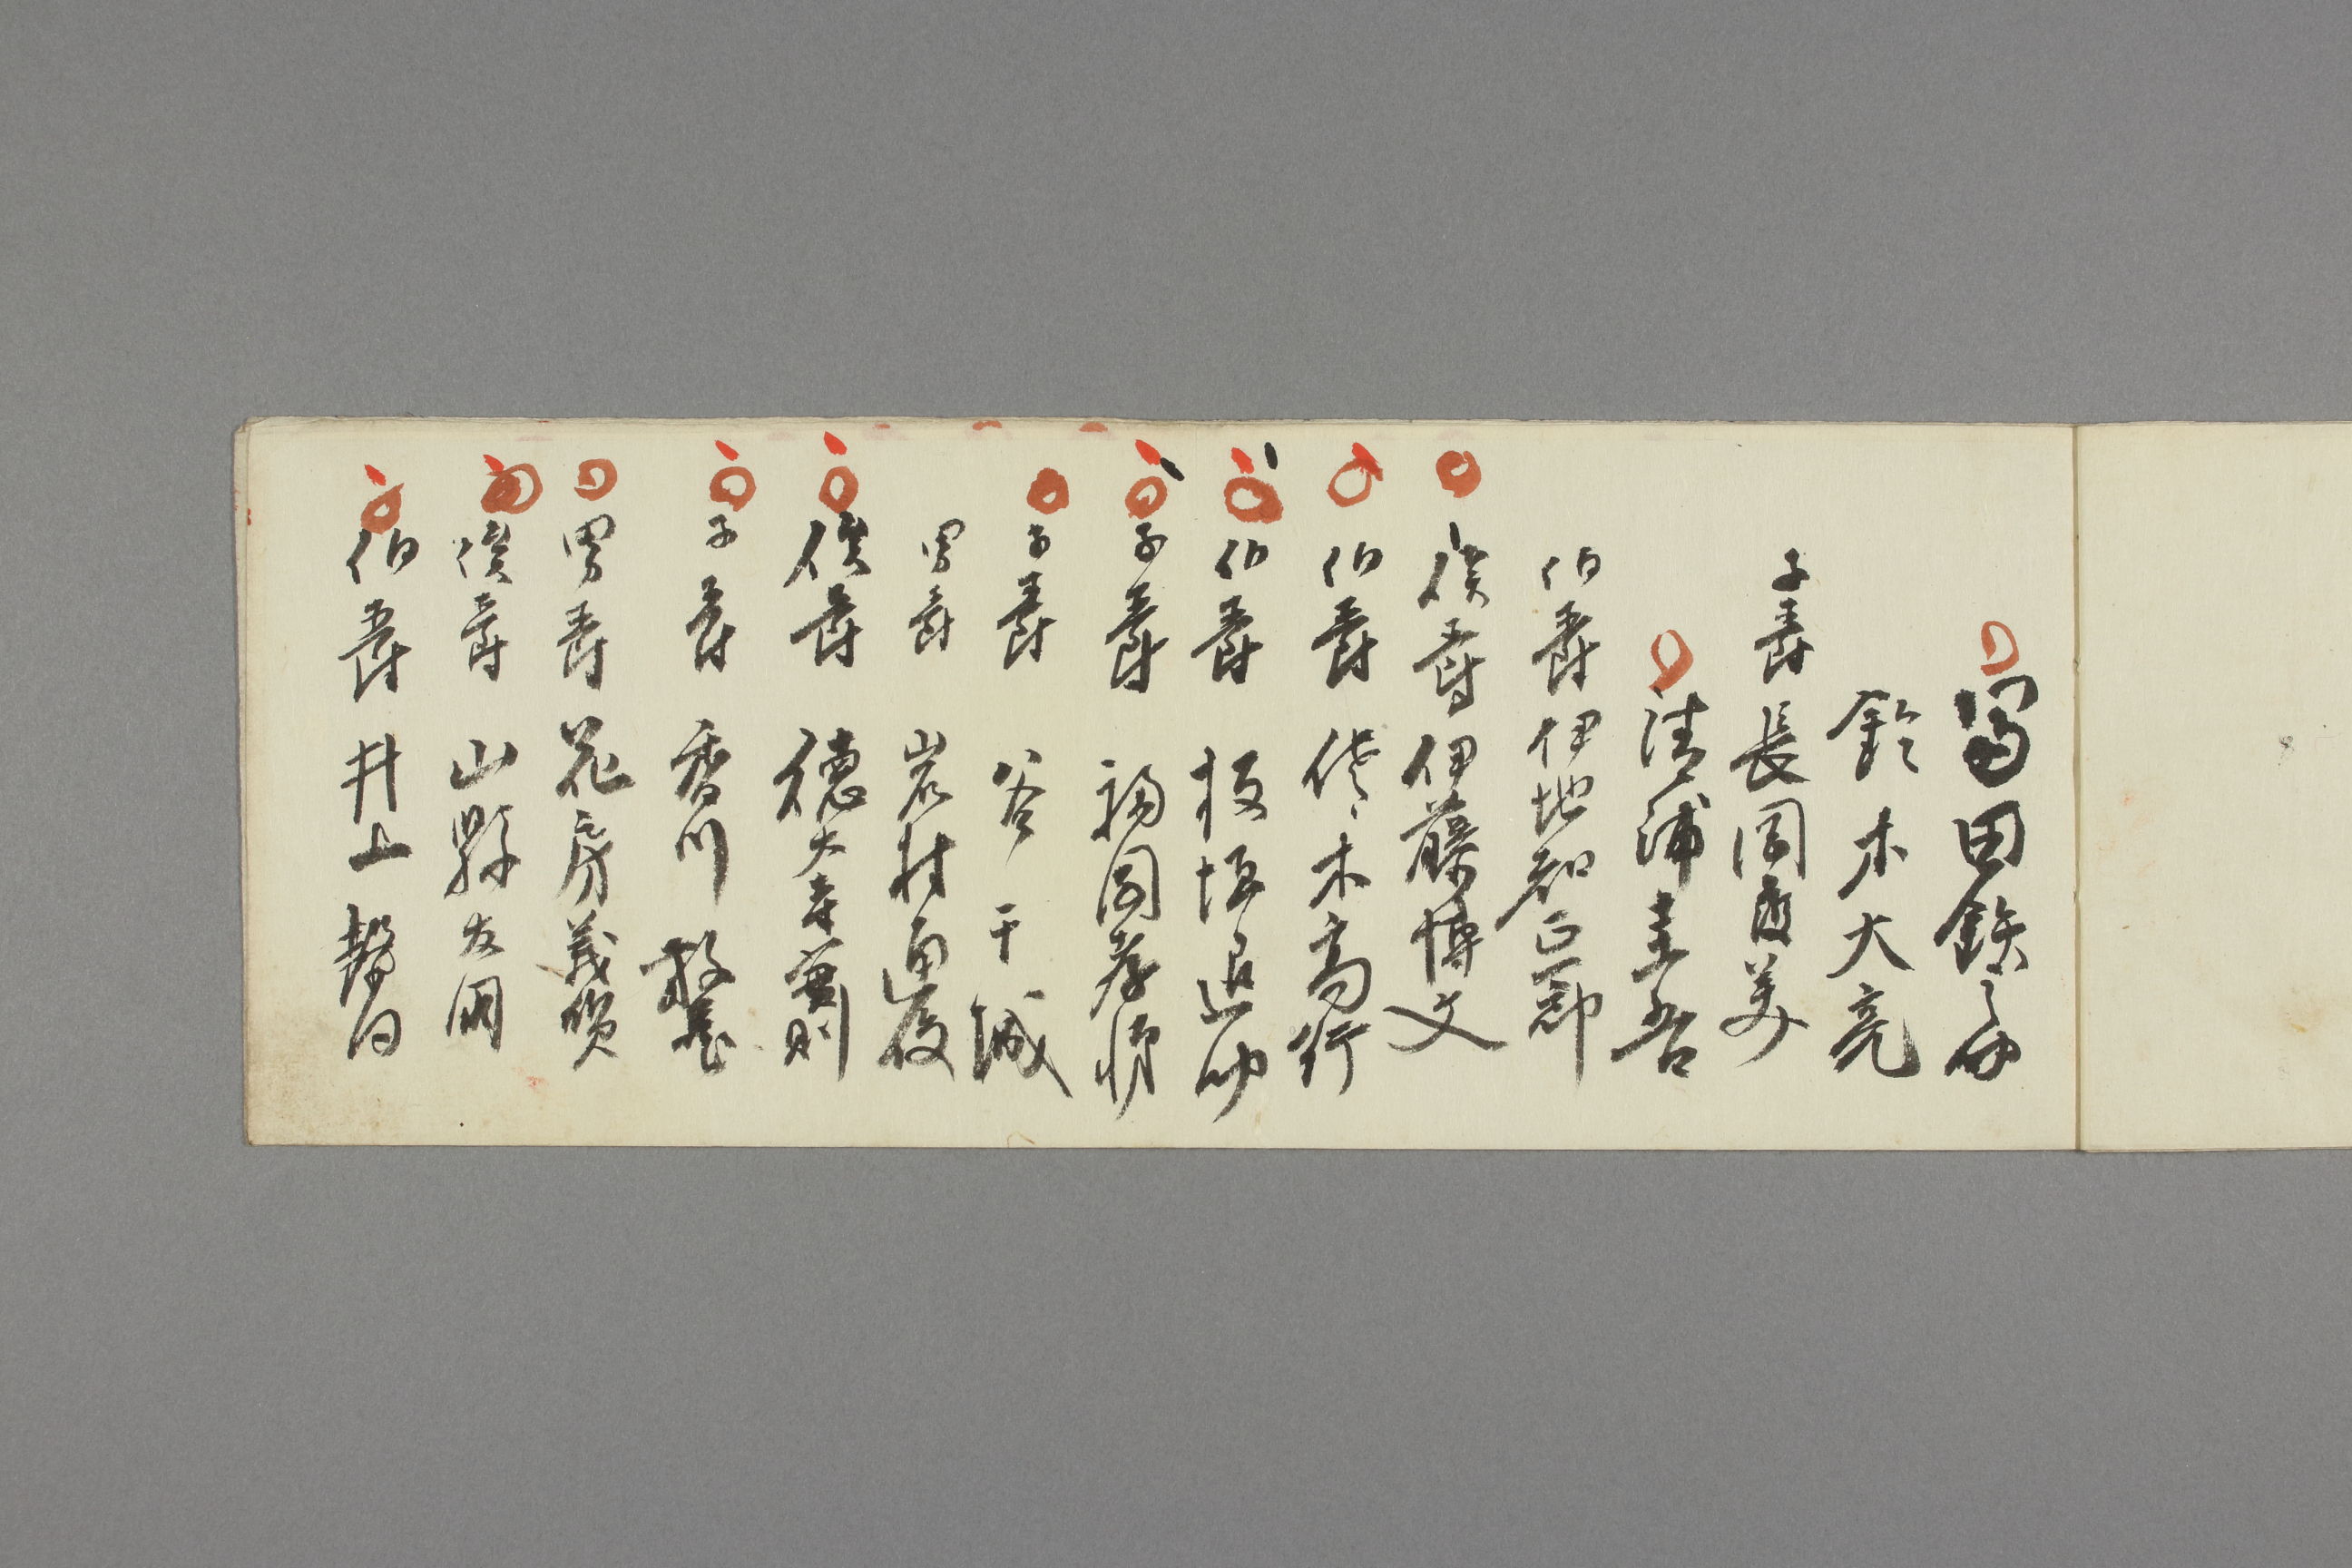 冨田鉄之助
鈴木大亮
子爵 長岡護美
清浦圭吾
伯爵 伊地知正郎
侯爵 伊藤博文
伯爵 佐々木高行
伯爵 板垣退助
子爵 福岡孝悌
子爵 谷干城
男爵 岩村通俊
侯爵 徳大寺實則
子爵 香川敬三
男爵 花房義質
侯爵 山縣有朋
伯爵 井上馨